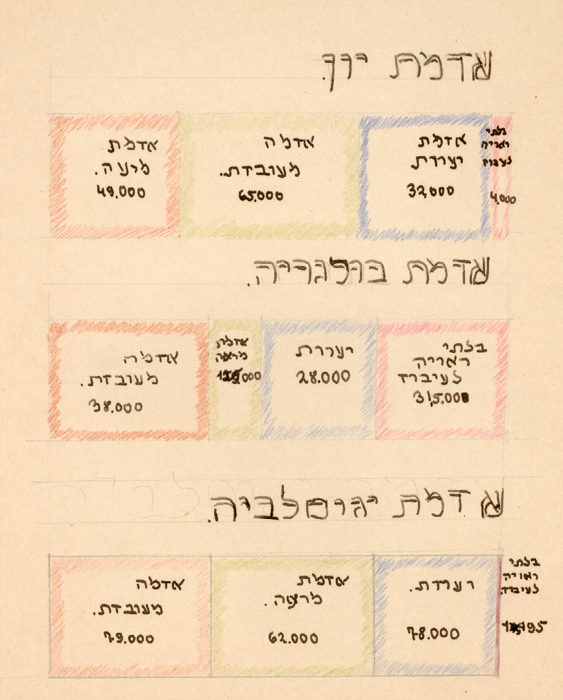 אדמת יון.
בלתי
ראוייה
לעיבוד
4,000
אדמת
יערות
32,000
אדמה
מעובדת.
65.000
אדמת
מרעה.
49.000
אדמת בולגריה.
בלתי
ראוייה
לעיבוד
315.000
יערות
28.000
אדמת
מראה
אדמה
מעובדת.
38.000
אדמת יגוסלביה.
בלתי
ראוייה
לעיבוד.
יערות.
78.000
אדמת
מרעה.
62.000
אדמה
מעובדת.
79.000